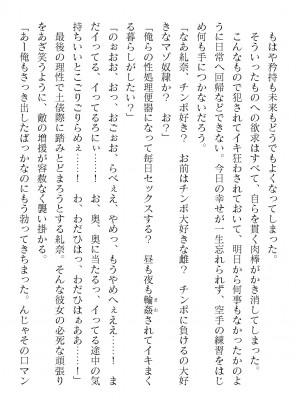 もはや矜持も未来もどうでもよくなってしまった。
そういったものへの欲求はすべて、自らを貫く肉棒がかき消してしまった。
こんなもので犯されてイキ狂わされておいて、明日から何事もなかったかのよ
うに日常へ回帰などできない。今日の幸せが一生忘れられず、空手の練習をはじ
め何も手につかないだろう。
「なあ紀奈、チンポ好き？　お前はチンポ大好きな雌？　チンポに負けるの大好
きなマゾ奴隷か？　お？」
「俺らの性処理便器になって毎日セックスする？　昼も夜も輪姦されてイキまく
る暮らしがしたい？」
「のぉおおお、おっ、おごぉお、らべぇえ、やめっ、もうやめへぇええ……！　ま
だイってる、イってるろにぃ……！　お、奥、奥に当たるっ、イってる途中の気
持ちいいとこごりごりらめぇ……！　わ、わだひは、わだひはぁああ……！」
最後の理性で土俵際に踏みとどまろうとする紀奈。そんな彼女の必死な頑張り
をあざ笑うように、敵の増援が容赦なく襲い掛かる。
「あー俺もさっき出したばっかなのにもう勃ってきちまった。んじゃその口マン